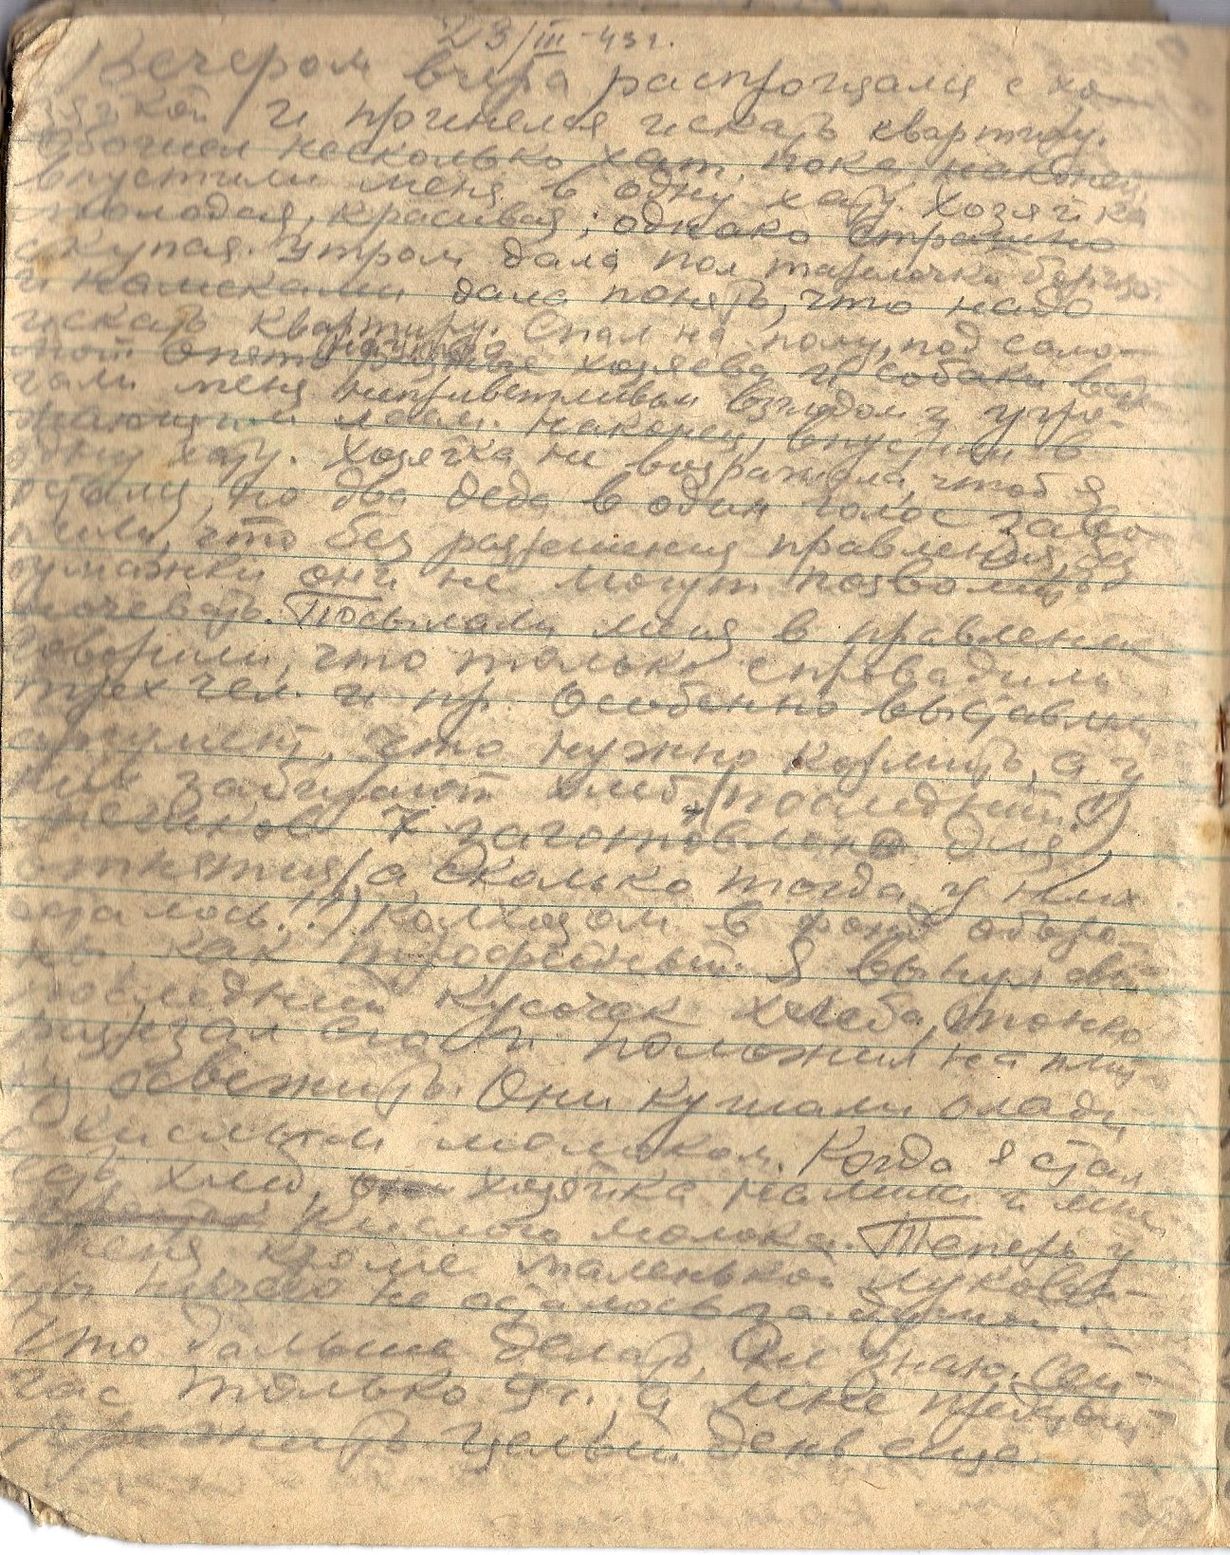 23/III-43 г.
Вечером вчера распрощался с хо-
зяйкой и принялся искать квартиру.
Обошел несколько хат, пока, наконец,
впустили меня в одну хату. Хозяйка
молодая, красивая, однако страшно
скупая. Утром дала пол тарелочки борща
и намеками дала понять, что надо
искать квартиру. Спал на полу, под соло-
мой. Опять хозяева и собаки встре-
чали меня неприветливым взглядом и угро-
жающим лаем. Наконец, впустили в
одну хату. Хозяйка не возражала, чтоб я
остался, но два деда в один голос заяв-
или, что без разрешения правления, без
бумажки они не могут позволить
ночевать. Посылали меня в правление
говорили, что только спровадили
трех чел. и пр. Особенно выставляли
аргумент, что нужно кормить, а у
них забирают хлеб (последний!)
7 заготовлено для
отнятия, а сколько тогда у них
осталось!!) Колхозом в фонд оборо-
ны как трофейный. Я вынул свой
последний кусочек хлеба, тонко
разрезал его и положил на пли-
ту освежить. Они кушали олади
с кислым молоком. Когда я стал
есть хлеб, хозяйка налила и мне
кислого молока. Теперь у
меня кроме маленькой луковки
ничего не осталось за душой.
Что дальше делать, не знаю. Сей-
час только 9 ч., и мне предстоит
прожить целый день еще